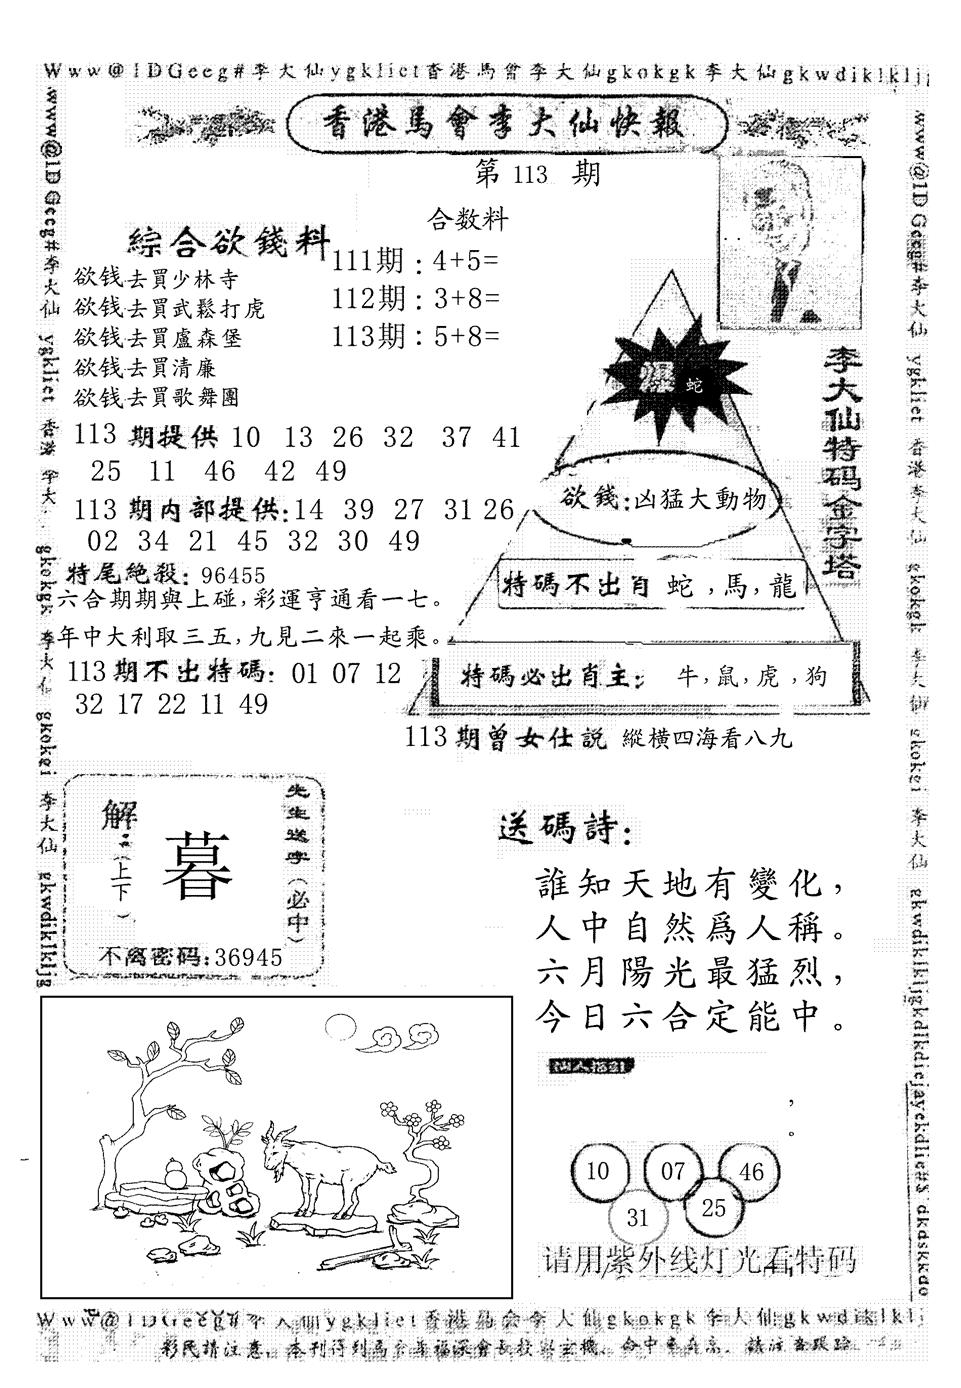 Www@1DGeeg#李大仙ygkliet香港馬會李大仙gkokgk李大仙gkwdiklkljg
香港馬會李大仙快報
第 113 期
合数料
綜合欲錢料
111期：4+5=
112期：3+8=
113期：5+8=
欲钱去買少林寺
欲钱去買武鬆打虎
欲钱去買盧森堡
欲钱去買清廉
欲钱去買歌舞團
113 期提供 10 13 26 32 37 41
25 11 46 42 49
113 期内部提供:14 39 27 31 26
02 34 21 45 32 30 49
特尾絶殺: 96455
六合期期與上碰,彩運亨通看一七。
年中大利取三五,九見二來一起乘。
113期不出特碼: 01 07 12
32 17 22 11 49
李大仙特码金字塔
爆 蛇
欲錢:凶猛大動物
特碼不出肖 蛇,馬,龍
特碼必出肖主: 牛,鼠,虎,狗
113期曾女仕説 縱横四海看八九
先生送字(必中)
解:(上下)
暮
不离密码:36945
送碼詩:
誰知天地有變化，
人中自然爲人稱。
六月陽光最猛烈，
今日六合定能中。
，
。
10 07 46
31 25
请用紫外线灯光看特码
www@1DGeeg#李大仙 ygkliet 香港 李大仙 gkokgk 李大仙 gkokei 李大仙 gkwdiklkljg
www@1DGeeg#李大仙 ygkliet 香港李大仙 gkokgk 李大仙 gkokei 李大仙 gkwdiklkljgkdlkdiejayekdlie#$ dkdskkdo
Www@1DGeeg#李大仙ygkliet香港馬会李大仙gkokgk李大仙gkwdiklklj
彩民請注意,本刊得到馬會